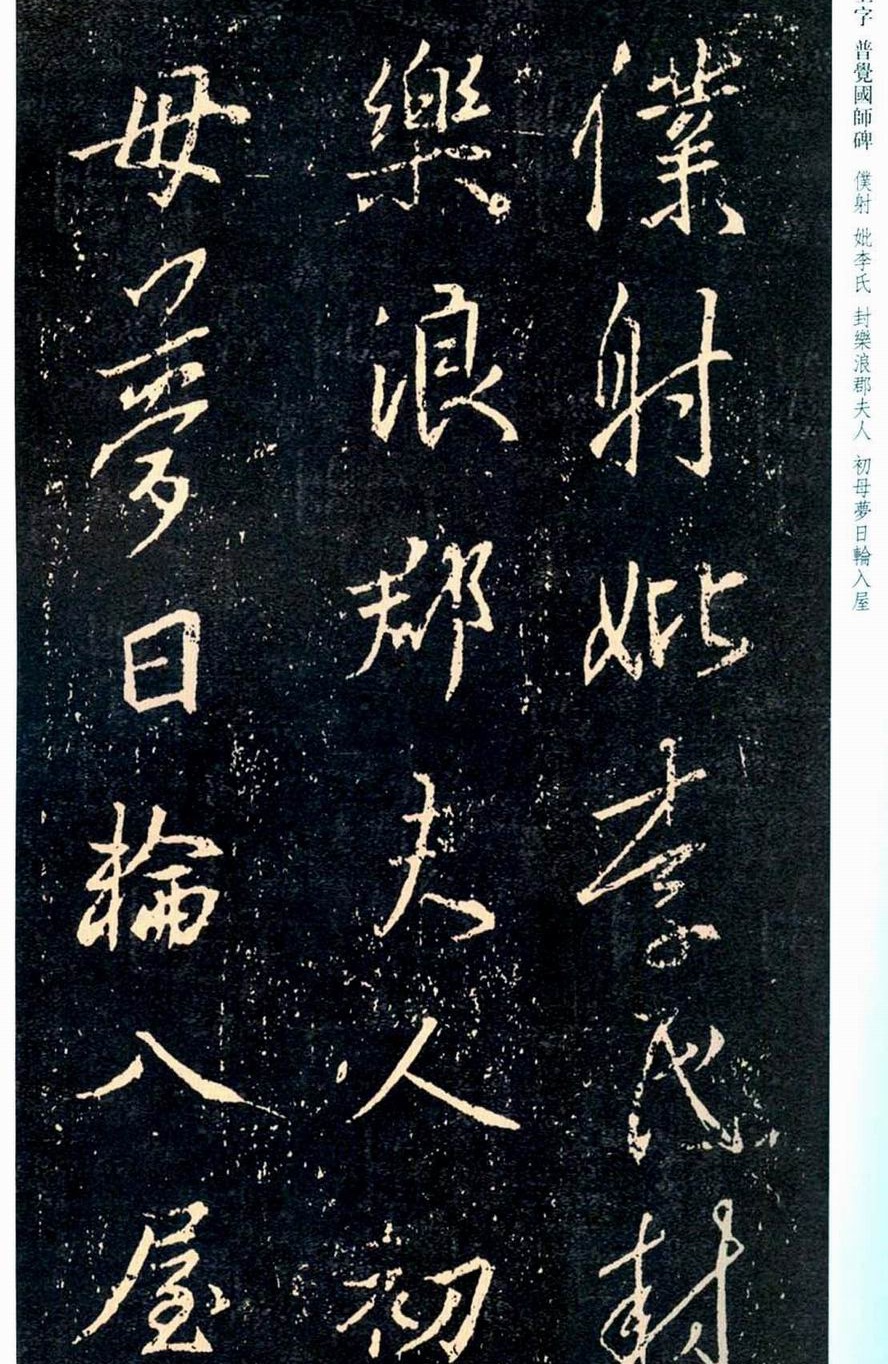 僕射妣李氏封
樂浪郡夫人初
母夢日輪入屋
字 普覺國師碑 僕射 妣李氏 封樂浪郡夫人 初母夢日輪入屋